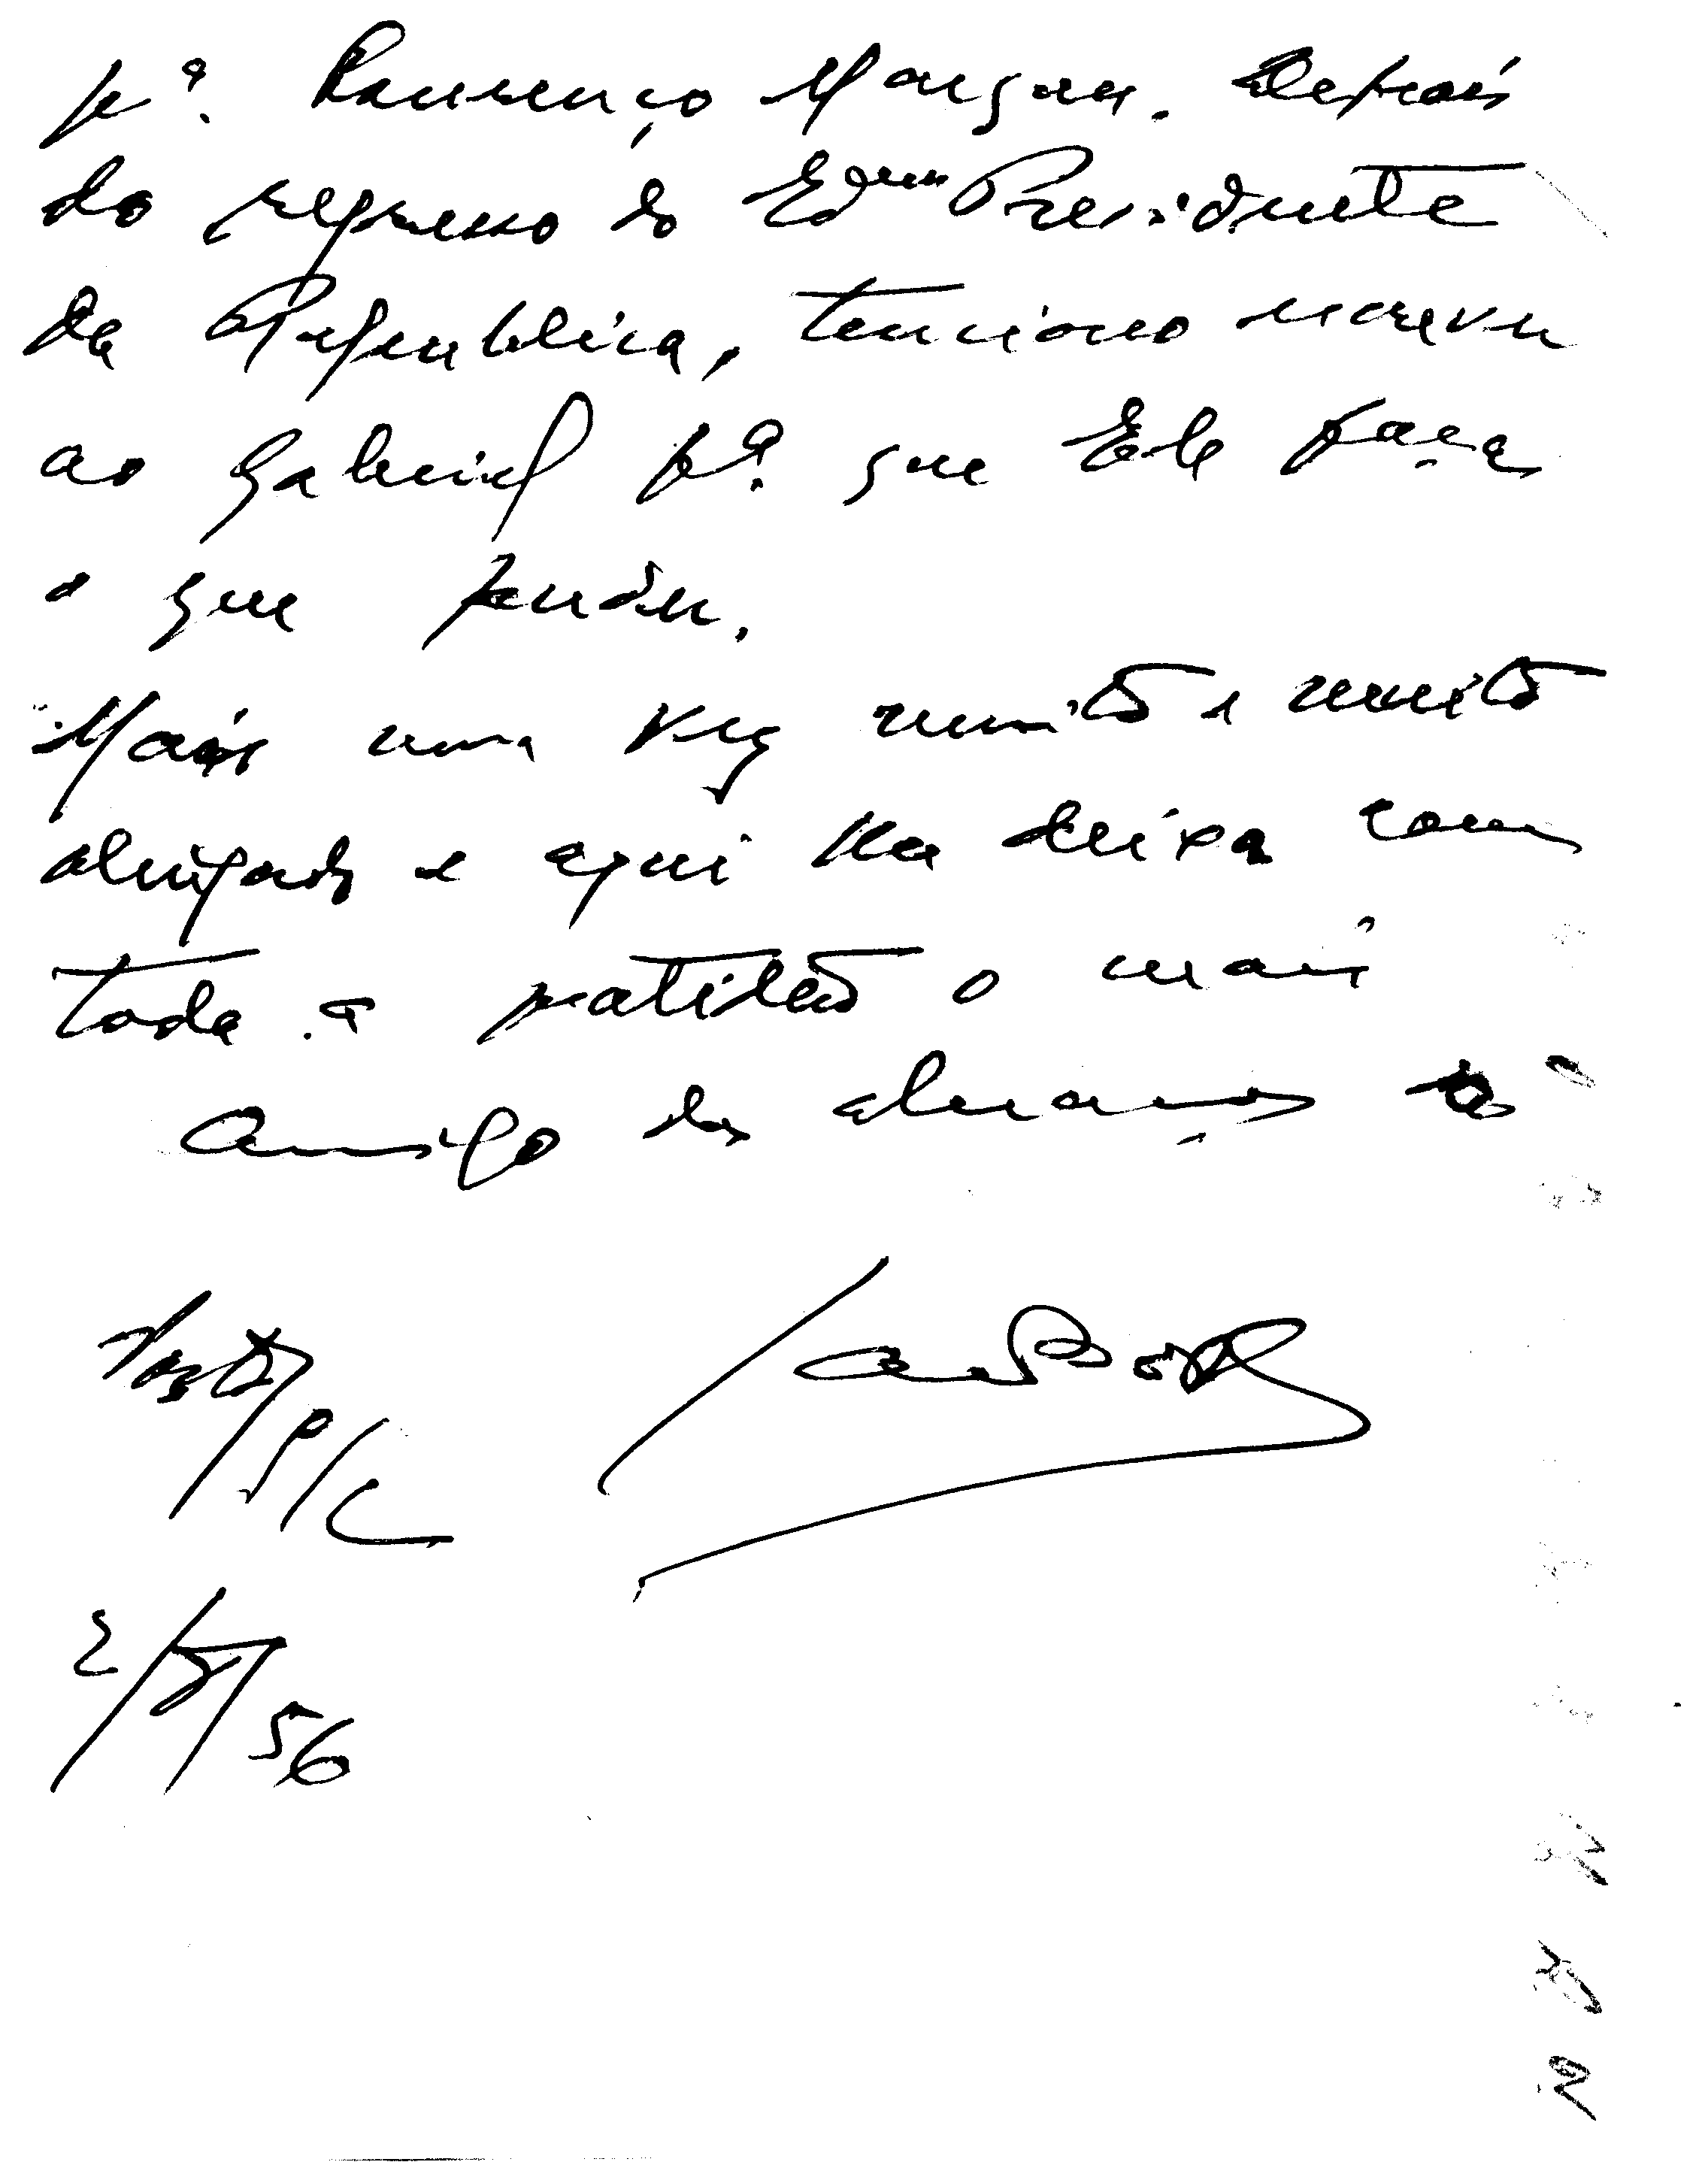 pª. Lourenço Marques. Depois
do regresso do Exmo Presidente
da Republica, tenciono escrever
ao Gabriel pª. que Ele faça
o que puder.
Mais uma vez muito e muito
obrigado e aqui lhe deixa com
toda a gratidão o mais
Amigo dos abraços o
2/8/56